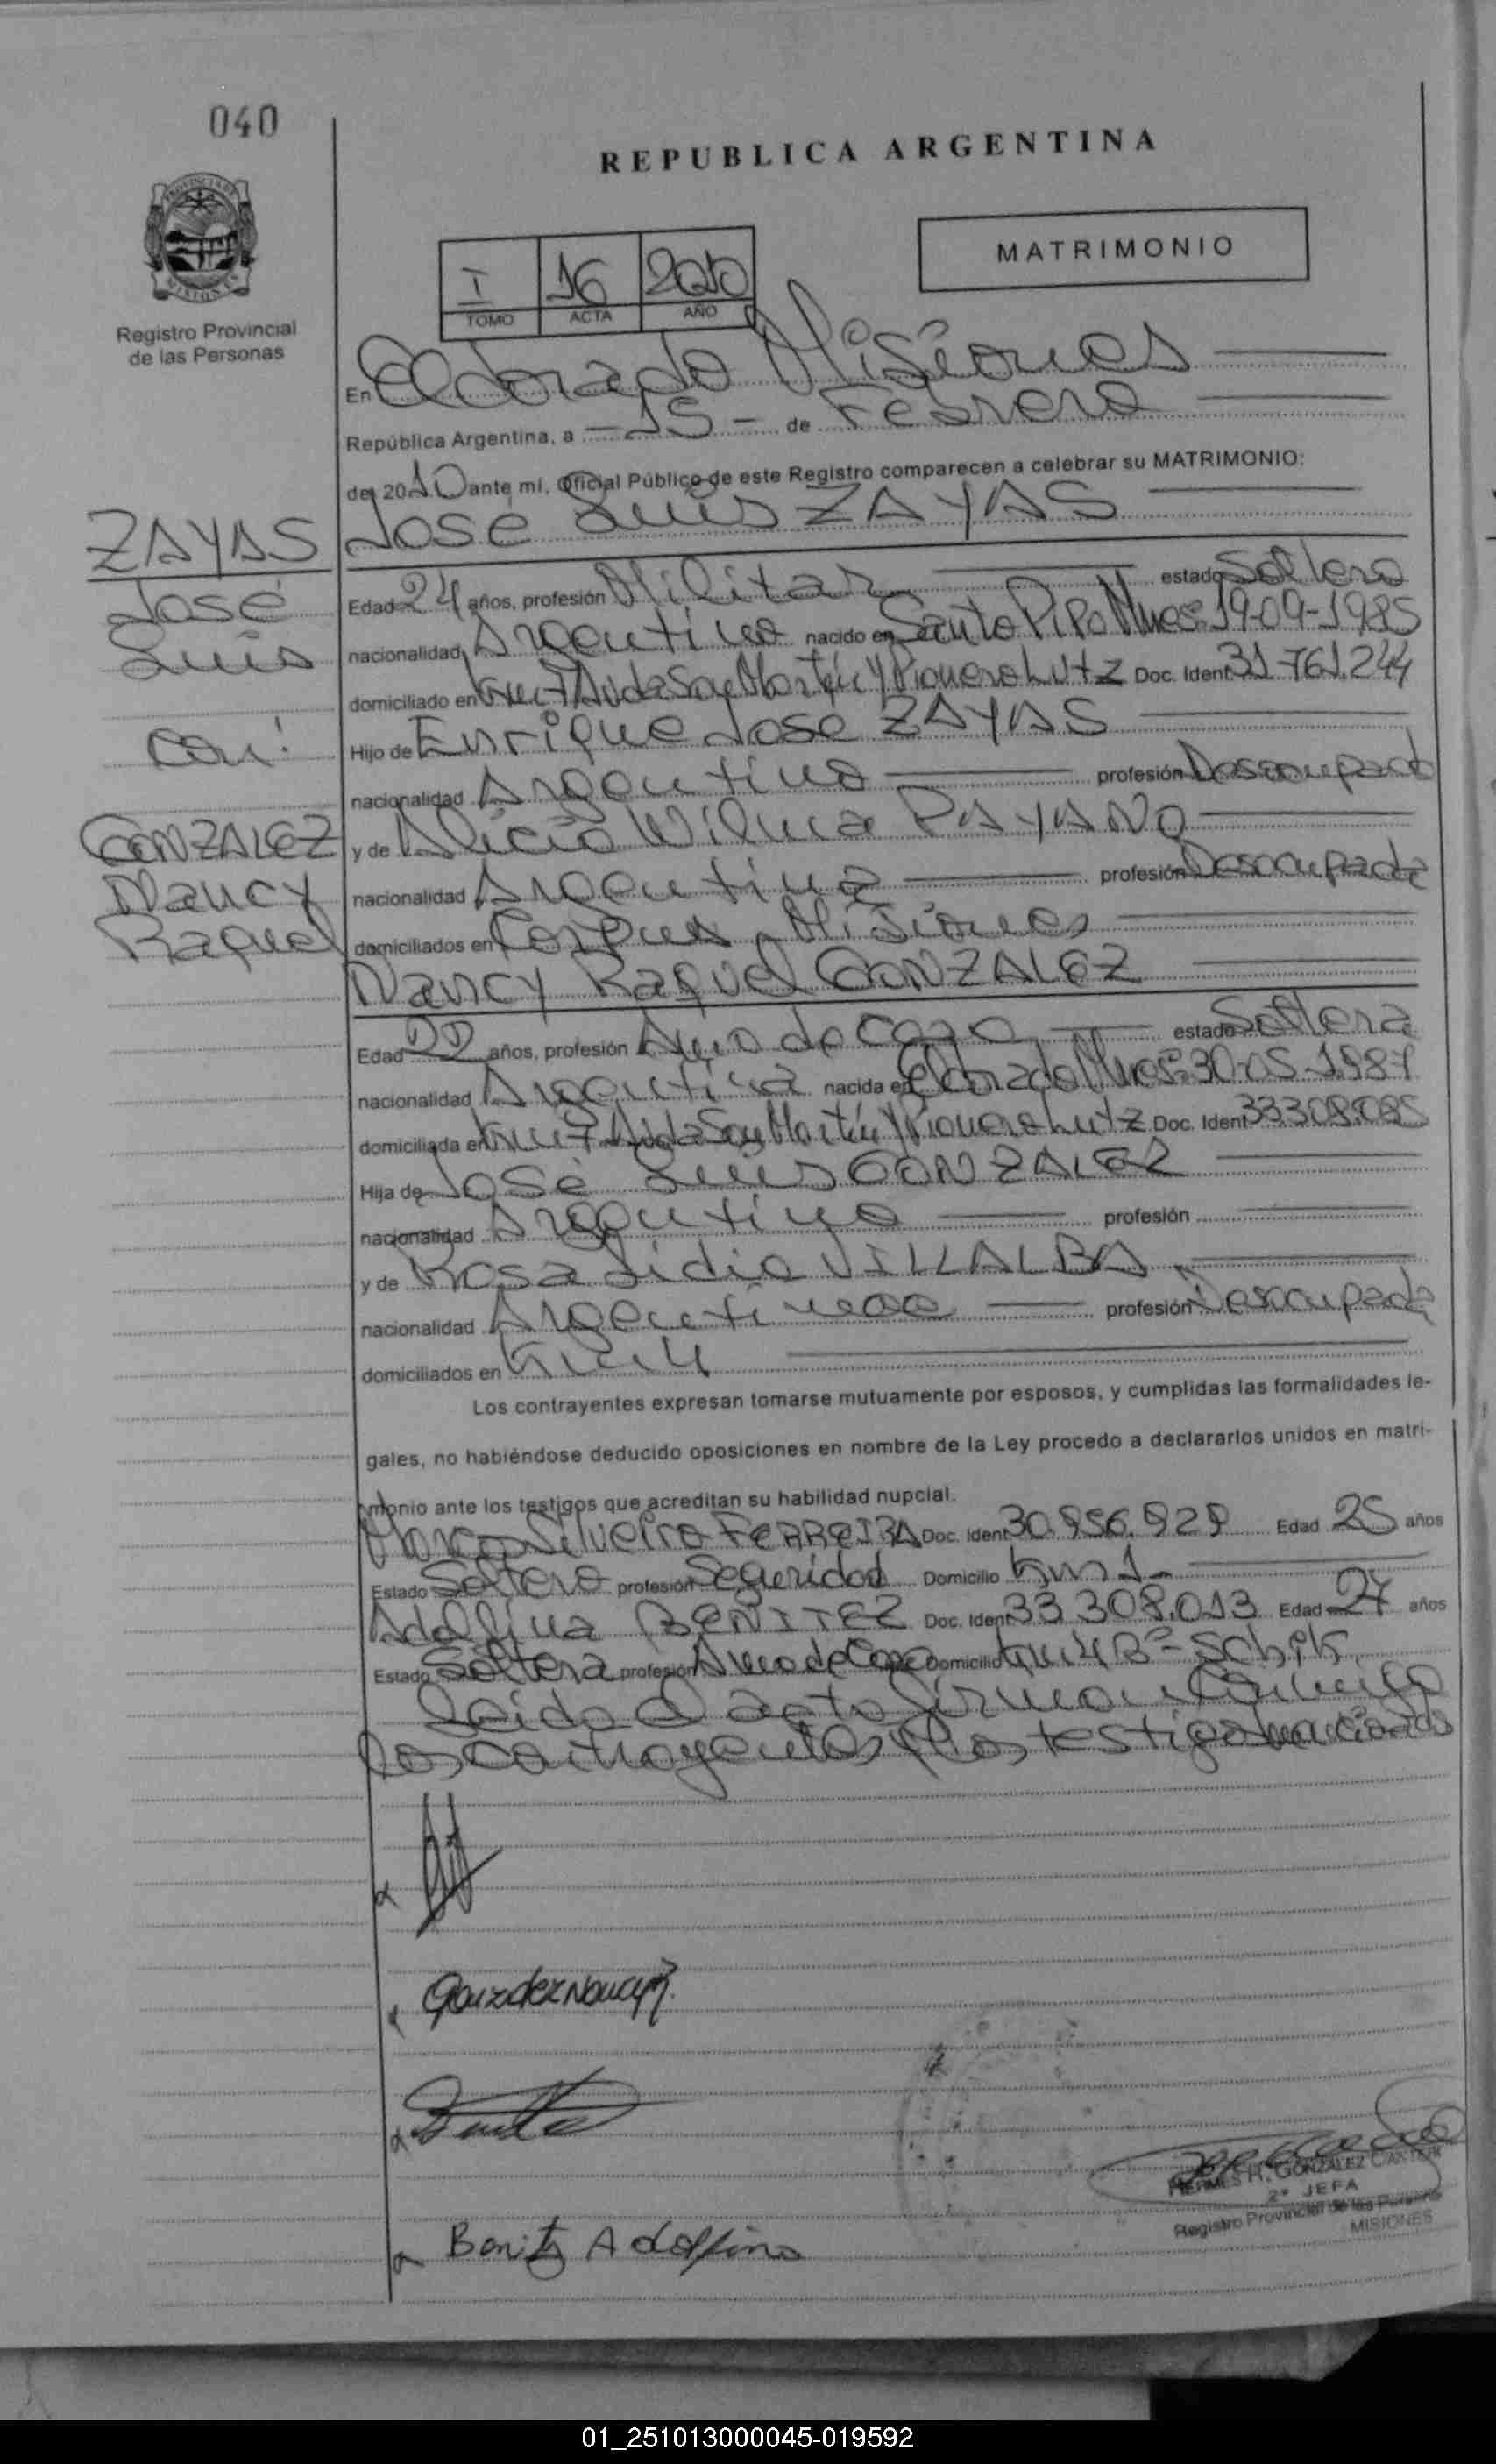 040
REPUBLICA ARGENTINA
MATRIMONIO
I 16 2010
TOMO ACTA AÑO
Registro Provincial
de las Personas
En Eldorado Misiones
República Argentina, a - 15 - de Febrero
de 2010 ante mí, Oficial Público de este Registro comparecen a celebrar su MATRIMONIO:
José Luis ZAYAS
ZAYAS
José
Luis
con:
GONZALEZ
Nancy
Raquel
Edad 24 años, profesión Militar estado Soltero
nacionalidad Argentino nacido en Santo Pipó Mnes. 19-09-1985
domiciliado en Km 7 Avda San Martín y Pionero Lutz Doc. Ident 31.761.244
Hijo de Enrique José ZAYAS
nacionalidad Argentino profesión Desocupado
y de Alicia Wilma PAYANO
nacionalidad Argentina profesión Desocupada
domiciliados en Corpus - Misiones
Nancy Raquel GONZALEZ
Edad 22 años, profesión Ama de Casa estado Soltera
nacionalidad Argentina nacida en Eldorado Mnes. 30-05-1987
domiciliada en Km 7 Avda San Martín y Pionero Lutz Doc. Ident 33.308.085
Hija de José Luis GONZALEZ
nacionalidad Argentino profesión
y de Rosa Lidia VILLALBA
nacionalidad Argentina profesión Desocupada
domiciliados en Km 4
Los contrayentes expresan tomarse mutuamente por esposos, y cumplidas las formalidades le-
gales, no habiéndose deducido oposiciones en nombre de la Ley procedo a declararlos unidos en matri-
monio ante los testigos que acreditan su habilidad nupcial.
Marcos Silveiro FERREIRA Doc. Ident 30.956.929 Edad 25 años
Estado Soltero profesión Seguridad Domicilio Km 1
Adolfina BENITEZ Doc. Ident 33.308.013 Edad 27 años
Estado Soltera profesión Ama de Casa Domicilio Km 4 B° Schik
Leído el acto firman conmigo
los contrayentes y los testigos mencionados
Gonzalez Nancy R.
Benitez Adolfina
HERMES H. GONZALEZ CANTERI
2° JEFA
Registro Provincial de las Personas
MISIONES
01_251013000045-019592